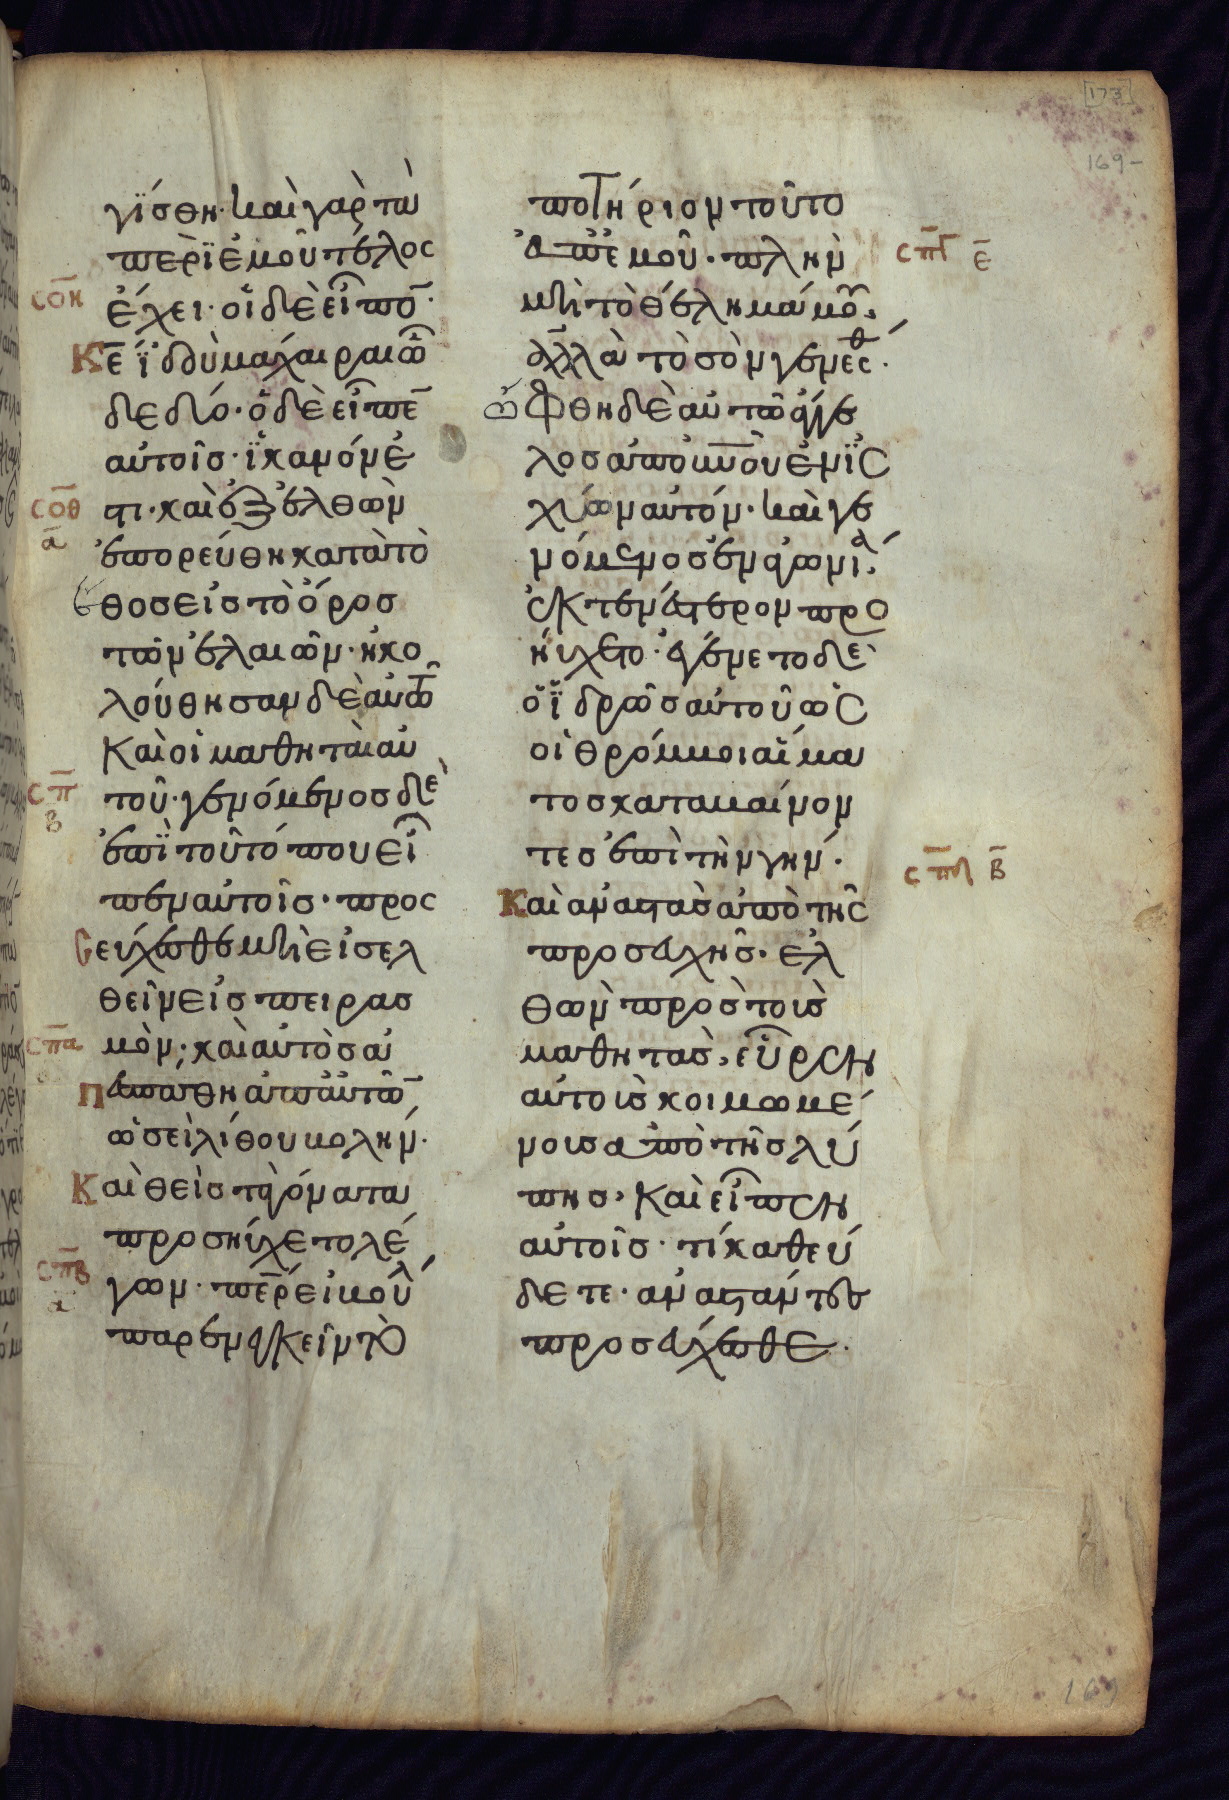 173
169-
γΐσθη· καὶ γὰρ τὰ
περὶ ἐμοῦ τέλος
σοη
ἔχει· οἱ δὲ εἶπο̄·
κε̄ ἰδοὺ μάχαιραι ὧ
δε δύο· ὁ δὲ εἶπε̄
αὐτοῖς· ἱκανόν ἐ
σοθ
α
στι· καὶ ἐξελθὼν
ἐπορεύθη κατὰ τὸ
ἔθος εἰς τὸ ὄρος
τῶν ἐλαιῶν· ἠκο
λούθησαν δὲ αὐτῶ
καὶ οἱ μαθηταὶ αὐ
σπ
β
τοῦ· γενόμενος δὲ
ἐπὶ τοῦ τόπου εἶ
πεν αὐτοῖς· προσ
εύχεσθε μὴ εἰσελ
θεῖν εἰς πειρασ
σπα
μόν· καὶ αὐτὸς ἀ
πεσπάσθη ἀπ' αὐτῶ̄
ὡσεὶ λίθου βολήν·
καὶ θεὶς τὰ γόνατα
προσηύχετο λέ
σπβ
α
γων· πε̄ρ εἰ βούλ
παρενεγκεῖν τὸ
ποτήριον τοῦτο
ἀπ' ἐμοῦ· πλὴν
σπγ ε
μὴ τὸ θέλημά μου,
ἀλλὰ τὸ σὸν γενέσθ·
ὤφθη δὲ αὐτῶ ἄγγε
λος ἀπ' οὐνοῦ ἐνισ
χύων αὐτόν· καὶ γε
νόμενος ἐν ἀγωνίᾳ,
ἐκτενέστερον προ
ηύχετο· ἐγένετο δὲ
ὁ ἱδρὼς αὐτοῦ ὡσ
οι θρόμβοι αἵμα
τος καταβαίνον
τες ἐπὶ τὴν γῆν·
σπδ β
καὶ ἀναστὰς ἀπὸ τῆς
προσευχῆς· ἐλ
θὼν πρὸς τοὺς
μαθητὰς, εὗρεν
αὐτοὺς κοιμωμέ
νους ἀπὸ τῆς λύ
πης, καὶ εἶπεν
αὐτοῖς· τί καθεύ
δετε· ἀναστάντες
προσεύχεσθε·
169